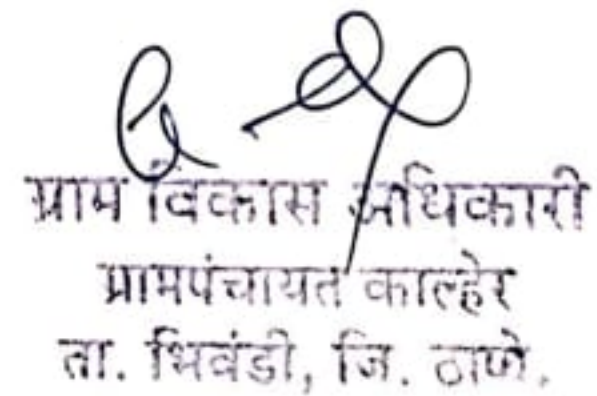 ग्राम विकास अधिकारी
ग्रामपंचायत काल्हेर
ता. भिवंडी, जि. ठाणे.